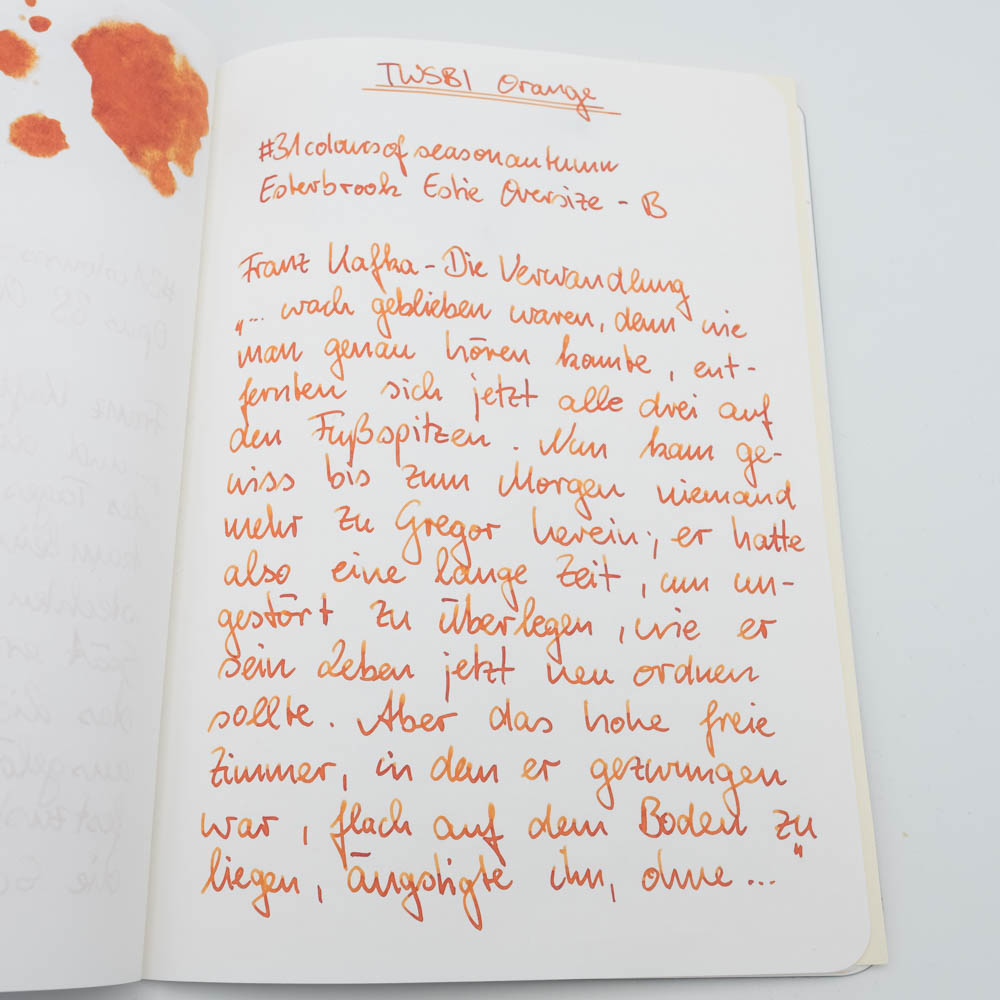 TWSBI Orange
#31coloursofseasonautumn
Esterbrook Estie Oversize - B
Franz Kafka - Die Verwandlung
„... wach geblieben waren, denn wie
man genau hören konnte, ent-
fernten sich jetzt alle drei auf
den Fußspitzen. Nun kam ge-
wiss bis zum Morgen niemand
mehr zu Gregor herein; er hatte
also eine lange Zeit, um un-
gestört zu überlegen, wie er
sein Leben jetzt neu ordnen
sollte. Aber das hohe freie
Zimmer, in dem er gezwungen
war, flach auf dem Boden zu
liegen, ängstigte ihn, ohne ..."